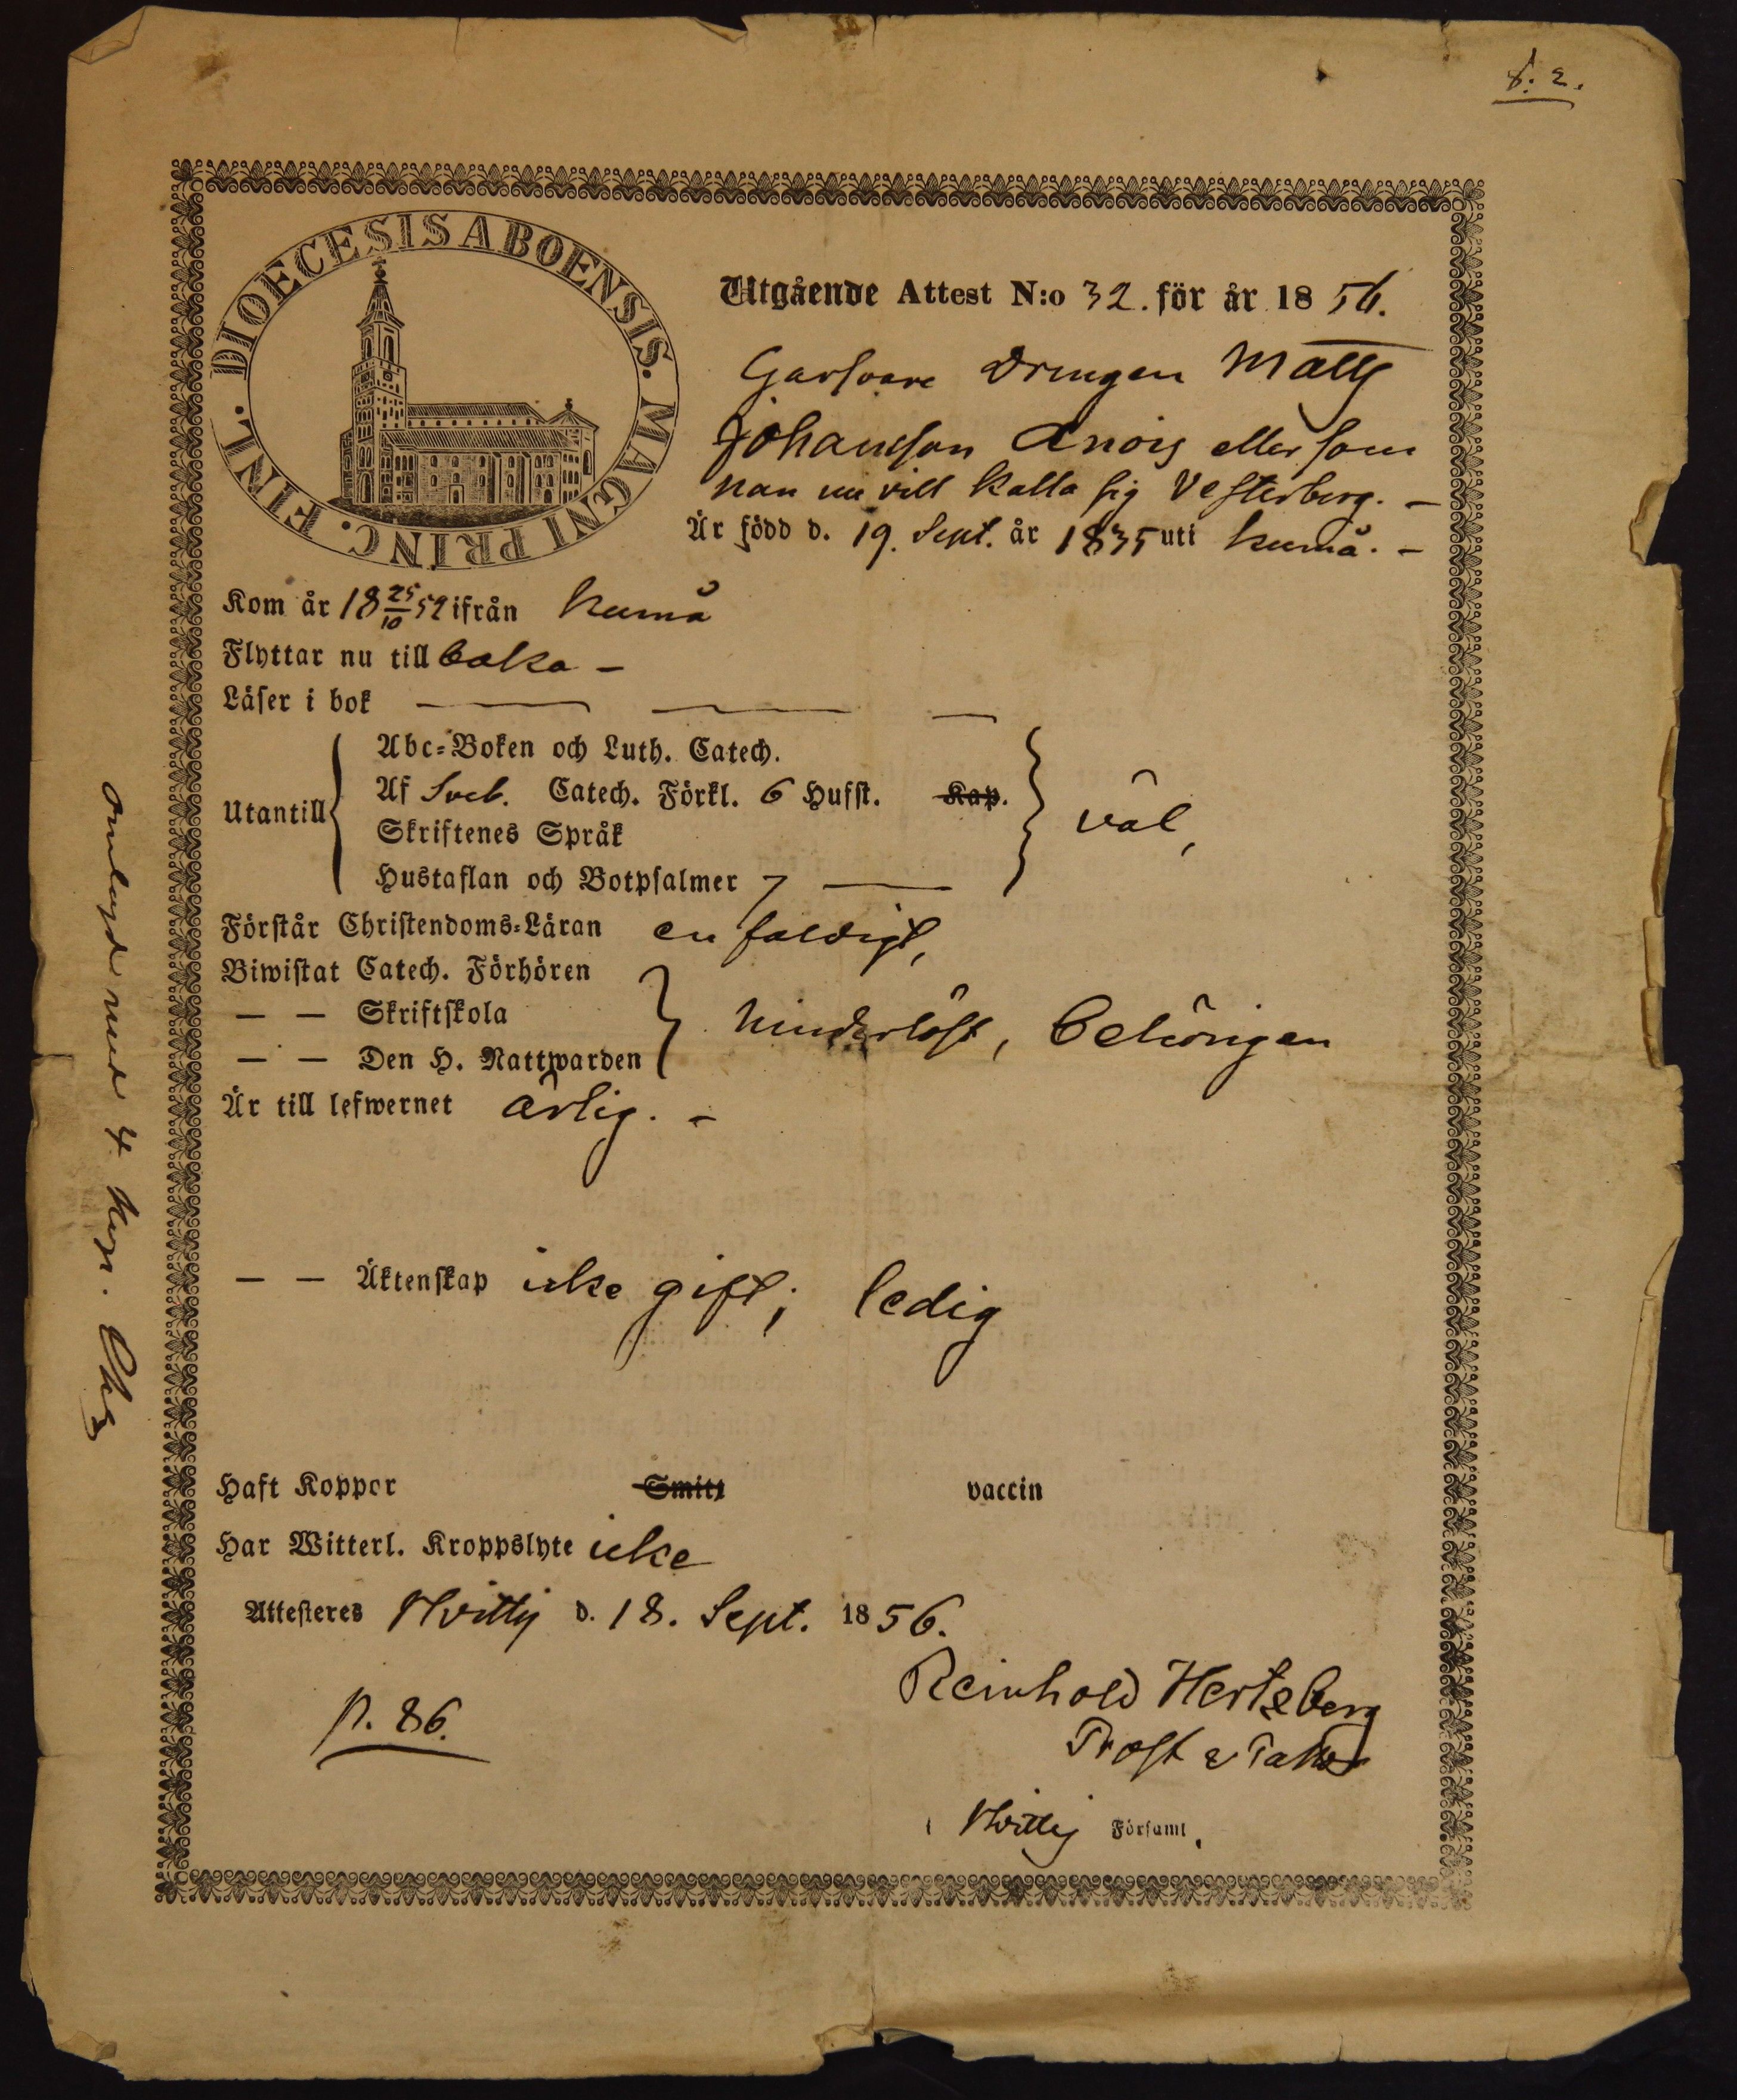 f. 2.
DIOECESIS ABOENSIS. MAGNI PRINC. FINL.
Utgående Attest N:o 32. för år 1856.
Garfvare Drengen Matts
Johansson Anois eller som
han nu vill kalla sig Vesterberg. –
Är född d. 19. Sept. år 1835 uti Kumå. –
Kom år 18 25/10 52 ifrån Kumå
Flyttar nu till baka –
Läser i bok — — —
Abc-Boken och Luth. Catech.
Af Sveb. Catech. Förkl. 6 Hufst. Kap.
Utantill väl,
Skriftenes Språk
Hustaflan och Botpsalmer 7 —
Förstår Christendoms-Läran enfaldigt,
Biwistat Catech. Förhören
— — Skriftskola hinderlöst, behörigen
— — Den H. Nattwarden
Är till lefwernet ärlig. –
— — Äktenskap icke gift; ledig
Haft Koppor Smitt vaccin
Har Witterl. Kroppslyte icke
Attesteres Hvittis d. 18. Sept. 1856.
Reinhold Hertzberg
p. 86.
Prost & Pastor
i Hvittis Församl.
omlagd med 4 kop.